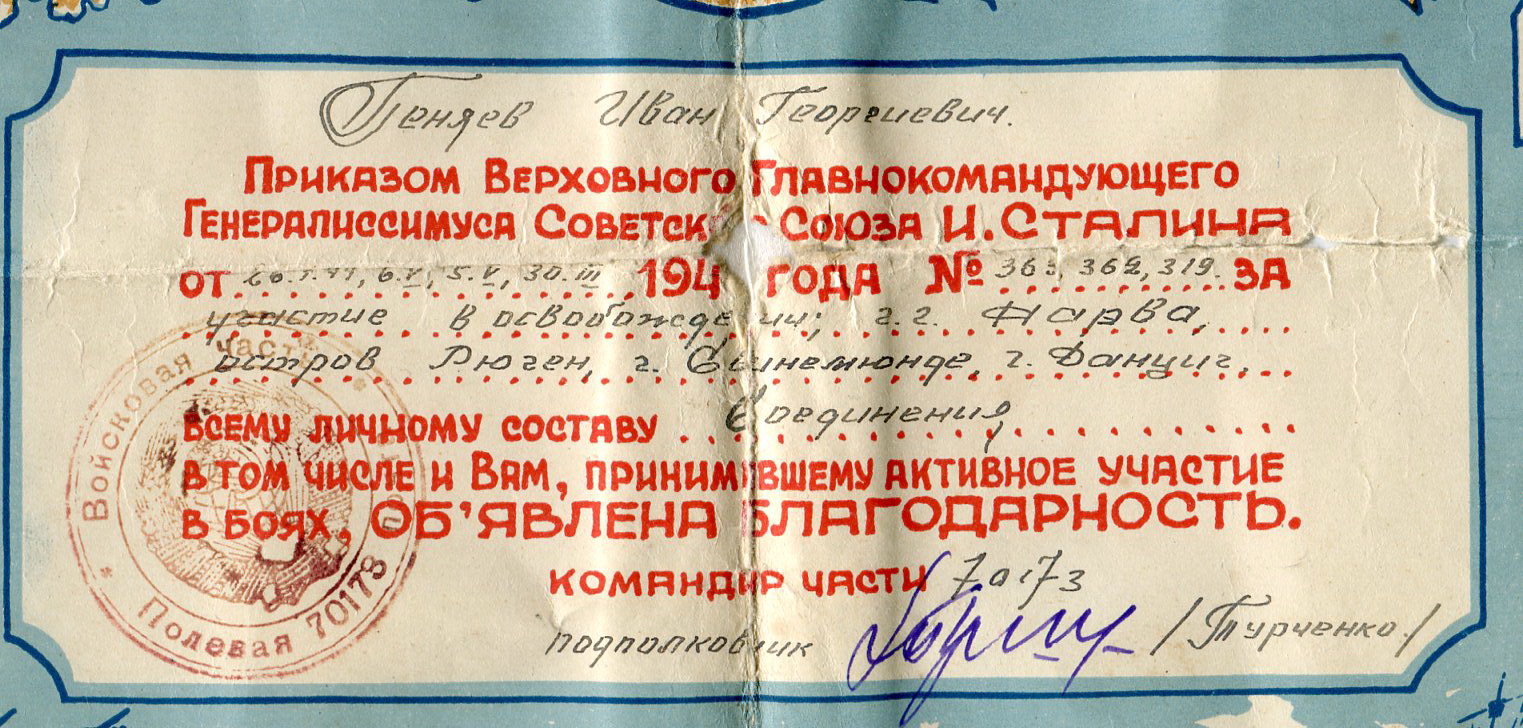 Пеняев Иван Георгиевич.
Приказом Верховного Главнокомандующего
Генералиссимуса Советск Союза И. Сталина
от 6.V, 5.V, 30.III 194 года № 363, 362, 319. за
участие в освобождении; г.г. Нарва,
остров Рюген, г. Свинемюнде, г. Данциг,
всему личному составу Соединения,
в том числе и Вам, принимавшему активное участие
в боях, об'явлена благодарность.
командир части 70173
подполковник /Турченко/
Войсковая часть
Полевая 70173